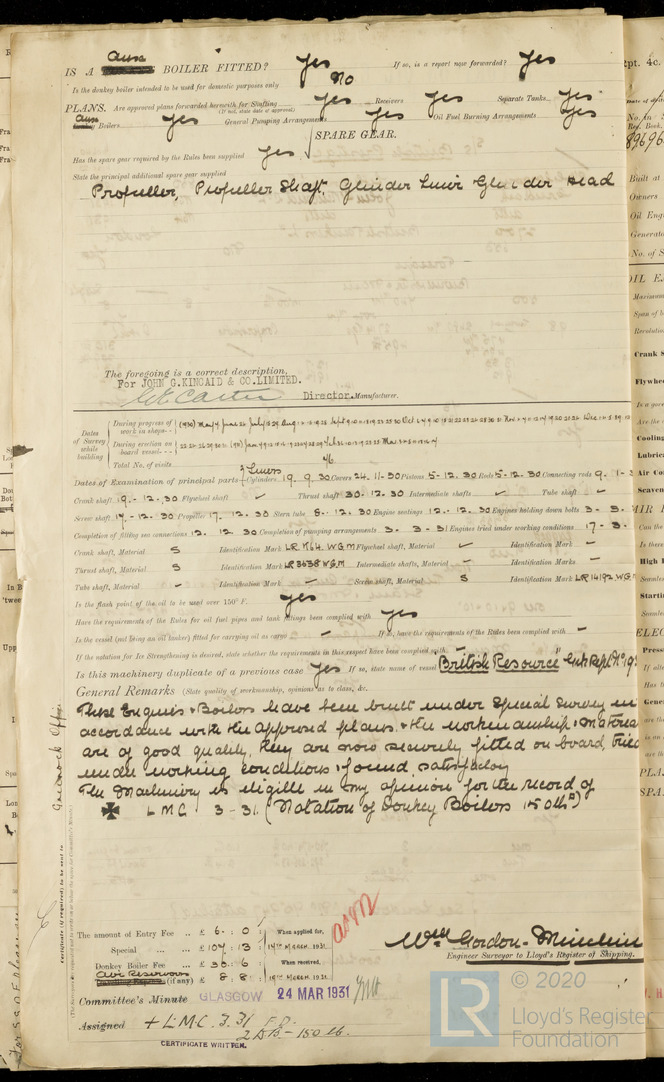 IS A Aux BOILER FITTED? Yes If so, is a report now forwarded? Yes
Is the donkey boiler intended to be used for domestic purposes only No
PLANS. Are approved plans forwarded herewith for Shafting Yes Receivers Yes Separate Tanks Yes
(If not, state date of approval)
Aux Boilers Yes General Pumping Arrangements Yes Oil Fuel Burning Arrangements Yes
SPARE GEAR.
Has the spare gear required by the Rules been supplied Yes
State the principal additional spare gear supplied
Propeller, Propeller Shaft, Cylinder Liner Cylinder Head
The foregoing is a correct description,
For JOHN G. KINCAID & CO. LIMITED.
Director. Manufacturer.
Dates of Survey while building
During progress of work in shops - -
During erection on board vessel - - -
Total No. of visits 46
Dates of Examination of principal parts Cylinders 19. 9. 30 Covers 24. 11. 30 Pistons 5. 12. 30 Rods 5. 12. 30 Connecting rods 9. 1.
Liners
Crank shaft 19. 12. 30 Flywheel shaft ✓ Thrust shaft 30. 12. 30 Intermediate shafts ✓ Tube shaft ✓
Screw shaft 17. 12. 30 Propeller 17. 12. 30 Stern tube 8. 12. 30 Engine seatings 12. 12. 30 Engines holding down bolts 3. 3.
Completion of fitting sea connections 12. 12. 30 Completion of pumping arrangements 3. 3. 31 Engines tried under working conditions 17. 3.
Crank shaft, Material S Identification Mark LR 1764 WGM Flywheel shaft, Material ✓ Identification Mark –
Thrust shaft, Material S Identification Mark LR 3638 WGM Intermediate shafts, Material ✓ Identification Marks –
Tube shaft, Material – Identification Mark – Screw shaft, Material S Identification Mark LR 14192 WGM
Is the flash point of the oil to be used over 150° F. Yes
Have the requirements of the Rules for oil fuel pipes and tank fittings been complied with Yes
Is the vessel (not being an oil tanker) fitted for carrying oil as cargo – If so, have the requirements of the Rules been complied with –
If the notation for Ice Strengthening is desired, state whether the requirements in this respect have been complied with –
Is this machinery duplicate of a previous case Yes If so, state name of vessel "British Resource" Gnk Rept No 19
General Remarks (State quality of workmanship, opinions as to class, &c.
These Engines & Boilers have been built under Special Survey in
accordance with the approved plans, & the workmanship & materia
are of good quality, they are now securely fitted on board, tried
under working conditions & found satisfactory
The Machinery is eligible in my opinion for the record of
✠ LMC. 3-31. (Notation of Donkey Boilers 150 lbs)
Greenock Office
Certificate (if required) to be sent to
The amount of Entry Fee .. £ 6 : 0 : When applied for,
Special ... £ 104 : 13 : 17th March 1931
Donkey Boiler Fee ... £ 30 : 6 When received,
Air Reservoirs (if any) £ 8 : 8 : 19th March 1931
Wm Gordon-Minchin
Engineer Surveyor to Lloyd's Register of Shipping.
Committee's Minute GLASGOW 24 MAR 1931
Assigned + LMC. 3.31 F.D.
2 DB – 150 lb.
CERTIFICATE WRITTEN.
© 2020
LR
Lloyd's Register
Foundation
pt. 4c.
89696
Built at
Owners
Oil Eng
Generat
No. of S
OIL E
Maximum
Span of b
Revolution
Crank S
Flywhee
Cooling
Lubrica
Air Co
Scaven
High
Starti
ELEC
Press
PLA
SPA